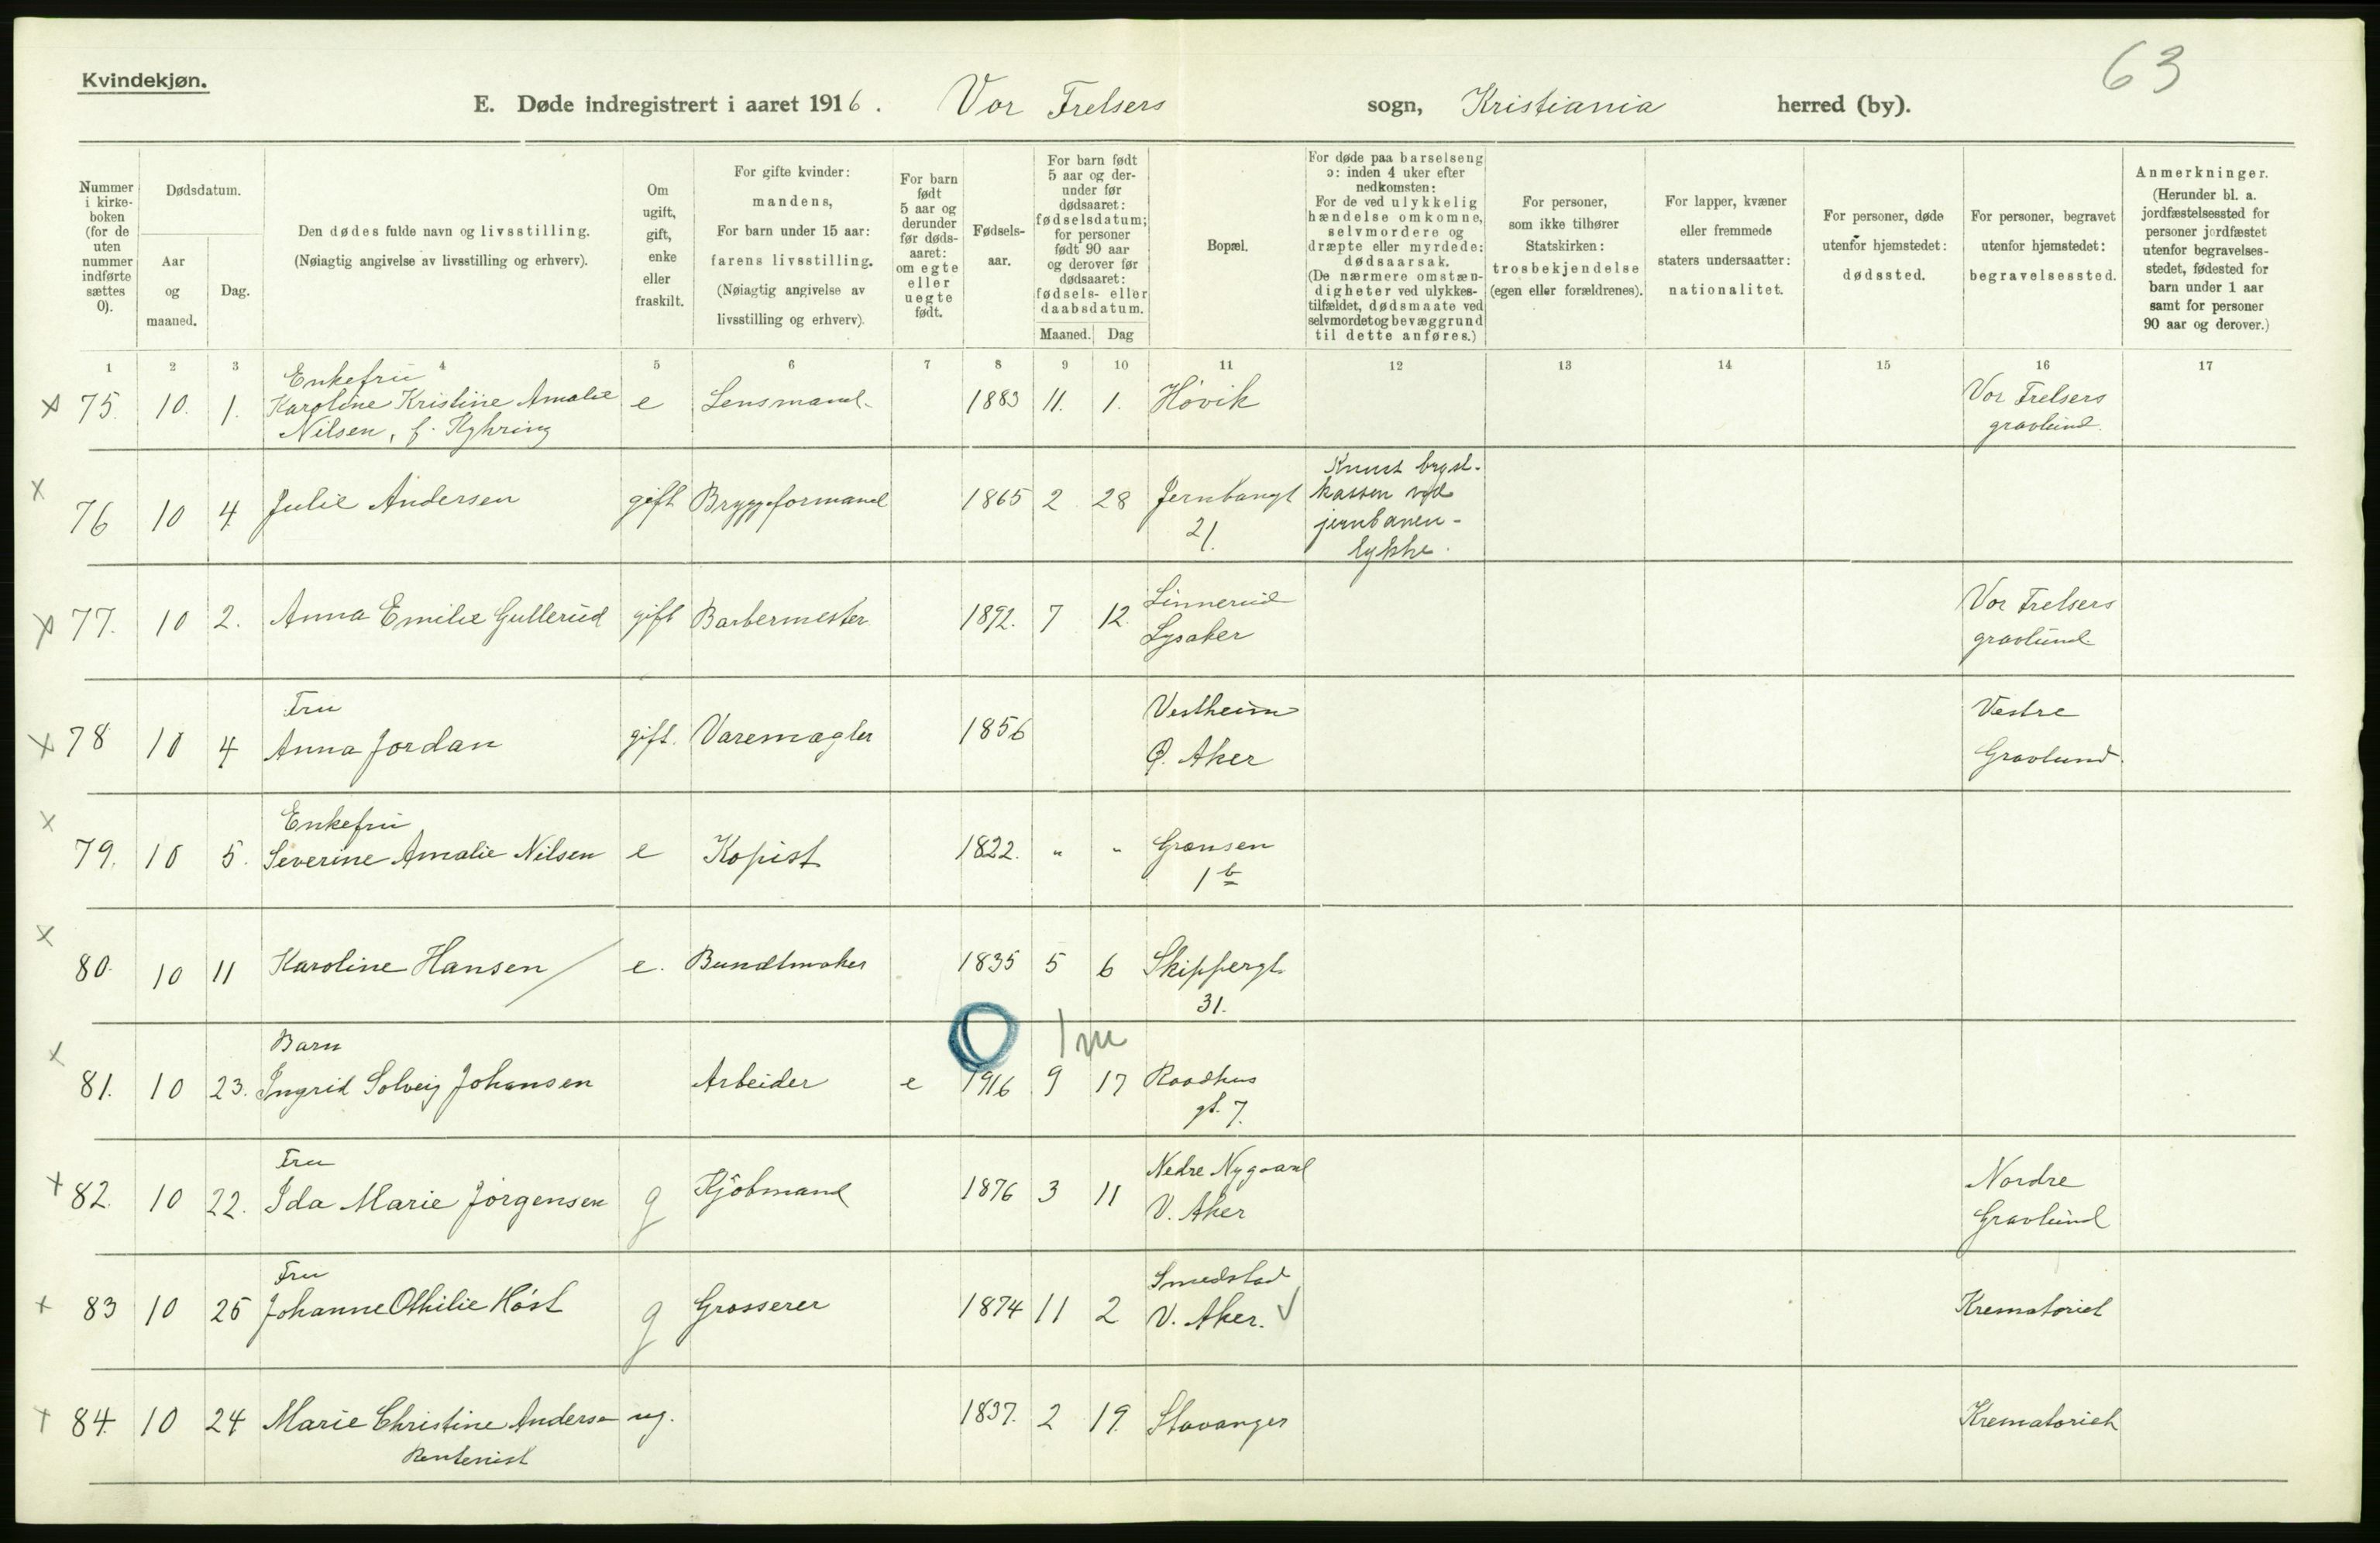 63
Kvindekjøn.
E. Døde indregistrert i aaret 1916. Vor Frelsers sogn, Kristiania herred (by).
Nummer i kirke-boken (for de uten nummer indførte sættes 0).
Dødsdatum.
Aar og maaned.
Dag.
Den dødes fulde navn og livsstilling.
(Nøiagtig angivelse av livsstilling og erhverv).
Om ugift, gift, enke eller fraskilt.
For gifte kvinder: mandens,
For barn under 15 aar: farens livsstilling.
(Nøiagtig angivelse av livsstilling og erhverv).
For barn født 5 aar og derunder før døds-aaret: om egte eller uegte født.
Fødsels-aar.
For barn født 5 aar og der-under før dødsaaret: fødselsdatum; for personer født 90 aar og derover før dødsaaret: fødsels- eller daabsdatum.
Maaned. Dag
Bopæl.
For døde paa barselseng ɔ: inden 4 uker efter nedkomsten:
For de ved ulykkelig hændelse omkomne, selvmordere og dræpte eller myrdede: dødsaarsak.
(De nærmere omstæn-digheter ved ulykkes-tilfældet, dødsmaate ved selvmordet og bevæggrund til dette anføres.)
For personer, som ikke tilhører Statskirken: trosbekjendelse (egen eller forældrenes).
For lapper, kvæner eller fremmede staters undersaatter: nationalitet.
For personer, døde utenfor hjemstedet: dødssted.
For personer, begravet utenfor hjemstedet: begravelsessted.
Anmerkninger.
(Herunder bl. a. jordfæstelsessted for personer jordfæstet utenfor begravelses-stedet, fødested for barn under 1 aar samt for personer 90 aar og derover.)
1 2 3 4 5 6 7 8 9 10 11 12 13 14 15 16 17
x 75. 10. 1. Enkefru
Karoline Kristine Amalie e Lensmand. 1883 11. 1. Høvik Vor Frelsers
Nilsen, f. Kyhring gravlund.
x 76 10 4 Julie Andersen gift Bryggeformand 1865 2 28 Jernbangt
21.
Knust bryst-
kassen ved
jernbaneu-
lykke.
x 77. 10 2. Anna Emilie Gullerud gift Barbermester 1892. 7 12. Linnerud
Lysaker
Vor Frelsers
gravlund.
x 78 10 4 Fru
Anna Jordan gift. Varemægler 1856 Vestheim
Ø. Aker
Vestre
Gravlund.
x 79. 10 5. Enkefru
Severine Amalie Nilsen e Kopist 1822. " " Grænsen
1 b
x 80. 10 11 Karoline Hansen e. Bundtmaker 1835 5 6 Skippergt.
31.
O 1 m
x 81. 10 23. Barn
Ingrid Solveig Johansen Arbeider e 1916 9 17 Raadhus
gt. 7.
x 82. 10 22. Fru
Ida Marie Jørgensen g Kjøbmand 1876 3 11 Nedre Nygaard
V. Aker
Nordre
Gravlund
x 83 10 25 Fru
Johanne Othilie Høst g Grosserer 1874 11 2 Smedstad
V. Aker. ✓
Krematoriet
x 84. 10 24 Marie Christine Andersen ug. 1837. 2 19. Stavanger Krematoriet
Rentenist